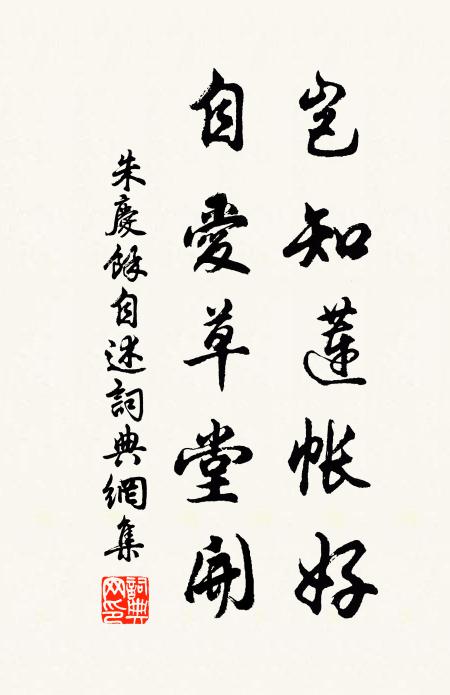 豈知蓮帳好
自愛草堂開
朱慶餘自述詞典網集
詞典網印